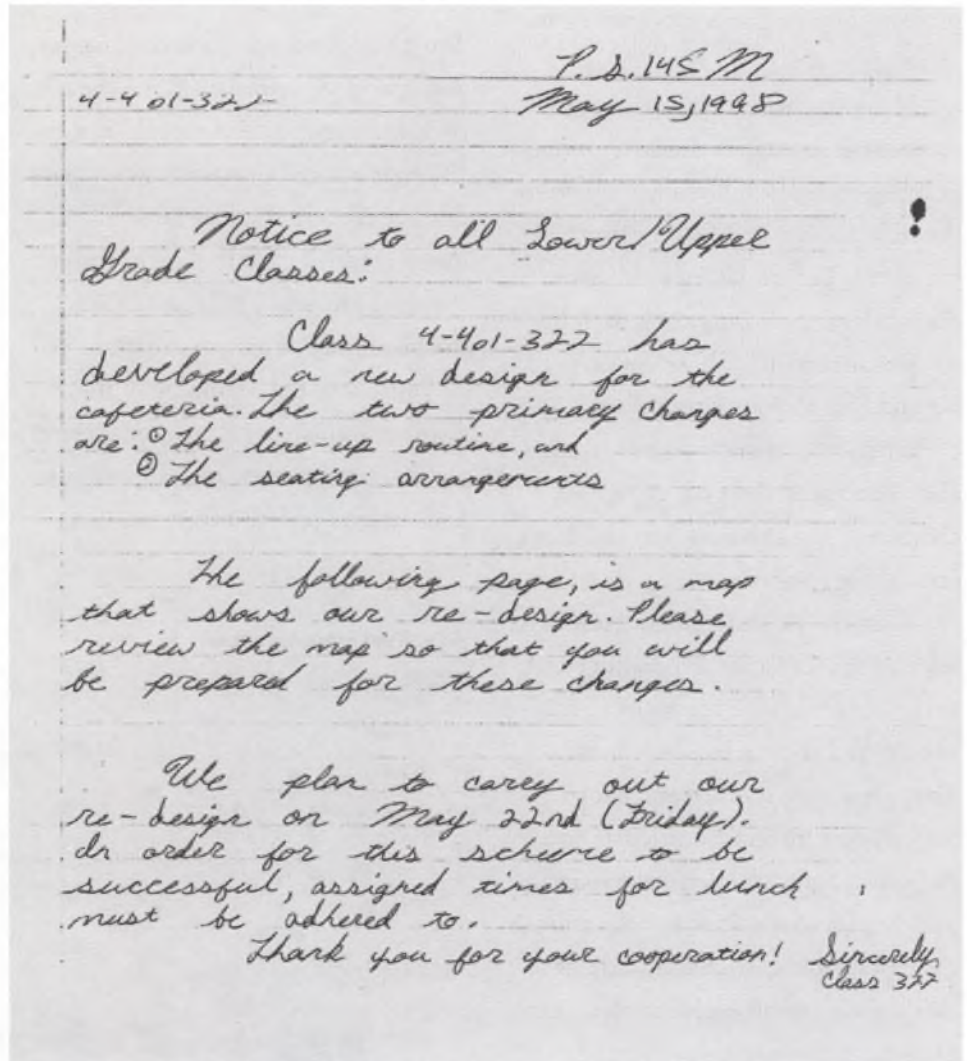 P.S. 145 M
4-401-322
May 15, 1998
Notice to all Lower/Upper
Grade Classes:
Class 4-401-322 has
developed a new design for the
cafeteria. The two primary changes
are: ① The line-up routine, and
② The seating arrangements
The following page, is a map
that shows our re-design. Please
review the map so that you will
be prepared for these changes.
We plan to carry out our
re-design on May 22nd (Friday).
In order for this scheme to be
successful, assigned times for lunch
must be adhered to.
Thank you for your cooperation! Sincerely,
Class 322